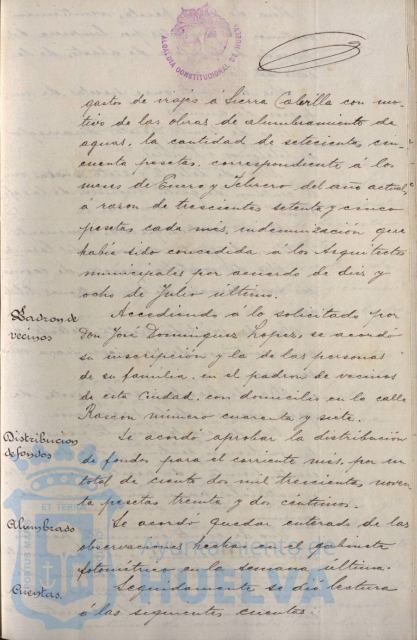 ALCALDIA CONSTITUCIONAL DE HUELVA
gastos de viajes á Sierra Cabrilla con mo-
tivo de las obras de alumbramiento de
aguas, la cantidad de setecientas cin-
cuenta pesetas, correspondiente á los
meses de Enero y Febrero del año actual,
á razon de trescientas setenta y cinco
pesetas cada mes, indemnización que
había sido concedida á los Arquitectos
municipales por acuerdo de diez y
ocho de Julio último.
Padron de
vecinos
Accediendo á lo solicitado por
Don José Dominguez Lopez, se acordó
su inscripción y la de las personas
de su familia, en el padrón de vecinos
de esta Ciudad, con domicilio en la calle
Rascon número cuarenta y siete.
Distribucion
de fondos
Se acordó aprobar la distribución
de fondos para el corriente mes, por un
total de ciento dos mil trescientas noven-
ta pesetas treinta y dos céntimos.
Alumbrado
Se acordó quedar enterado de las
observaciones hechas en el gabinete
fotométrico en la semana última.
Cuentas.
Seguidamente se dió lectura
á las siguientes cuentas:
Ayuntamiento de
HUELVA